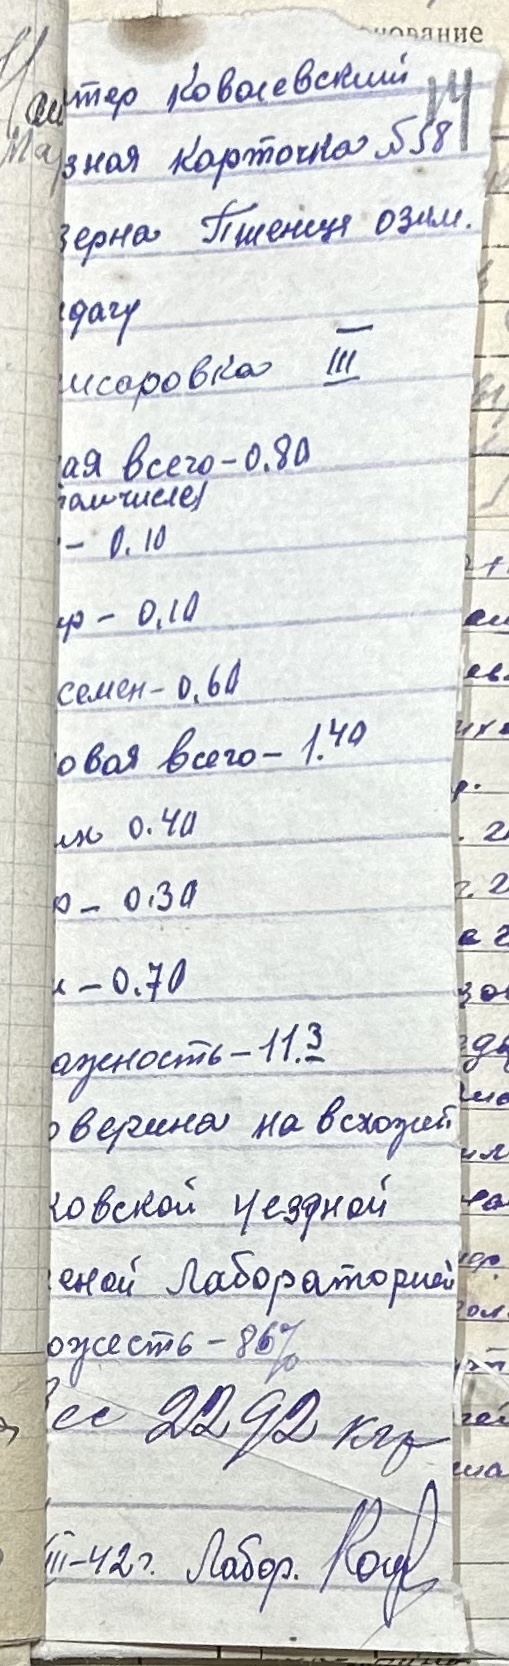 нование
14
тер Ковалевский
зная карточка №58
зерна Пшениця озим.
дачу
исаровка III
ая всего - 0.80
том числе)
- 0.10
р - 0,10
семен - 0,60
овая всего - 1.40
их 0.40
р - 0.30
- 0.70
ажность - 11.3
оверина на всхожей
ковской уездной
еной Лабораторией
ожесть - 86%
ес 2292 кгр
III-42 г. Лабор.